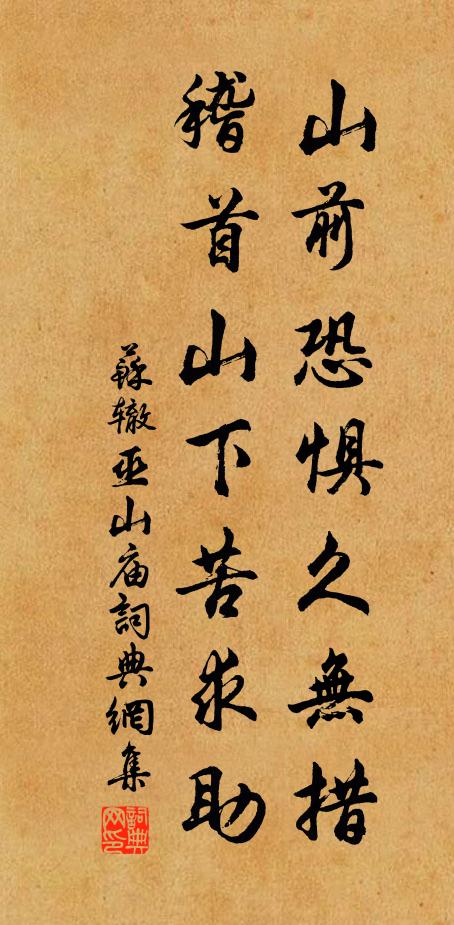 山前恐惧久無措
稽首山下苦求助
蘇辙巫山庙詞典網集
詞典网印